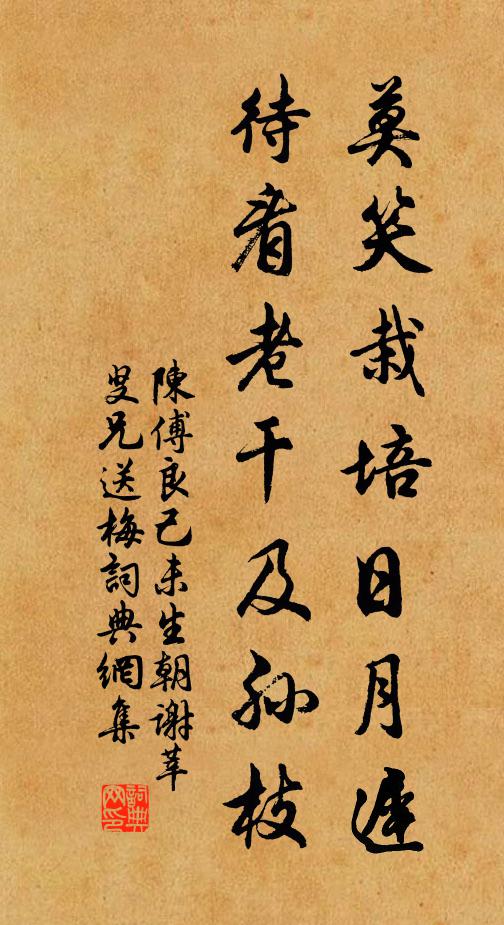 莫笑栽培日月遲
待看老干及孙枝
陳傅良己未生朝謝莘
叟兄送梅詞典網集
詞典网印